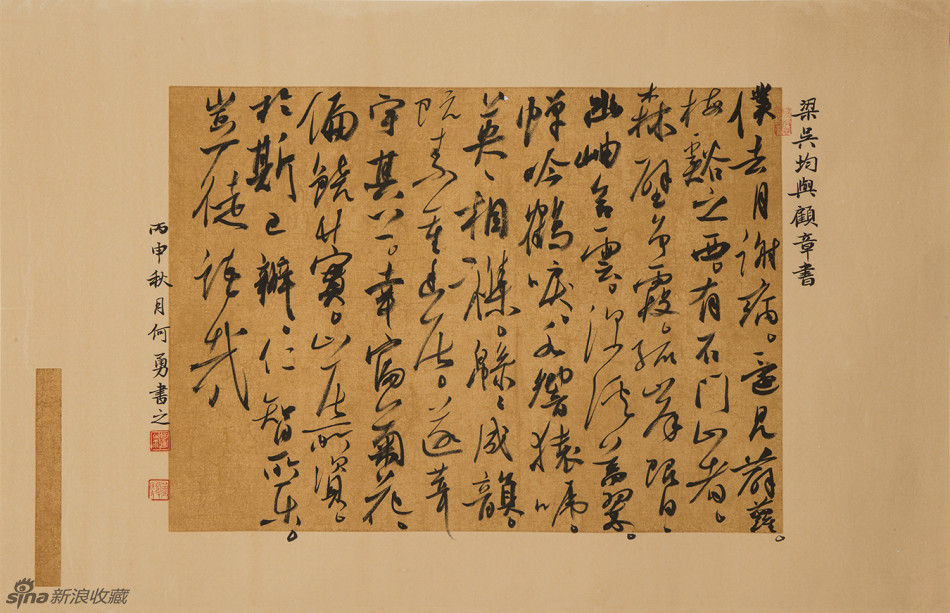 梁吳均與顧章書
僕去月謝病。還覓薜蘿。
梅谿之西。有石門山者。
森壁爭霞。孤峯限日、
幽岫含雲。深谿蓄翠。
蟬吟鶴唳、水響猿啼。
英〻相雜。緜〻成韻。
既素重幽居。遂葺
宇其上。幸富菊花、
偏饒竹實。山谷所資。
於斯已辦。仁智所樂。
豈徒語哉
丙申秋月何勇書之
sina新浪收藏